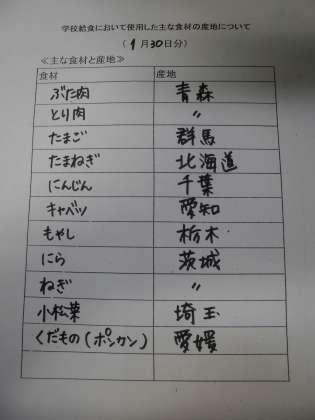 学校給食において使用した主な食材の産地について
(1月30日分)
≪主な食材と産地≫
食材 産地
ぶた肉 青森
とり肉 〃
たまご 群馬
たまねぎ 北海道
にんじん 千葉
キャベツ 愛知
もやし 栃木
にら 茨城
ねぎ 〃
小松菜 埼玉
くだもの(ポンカン) 愛媛